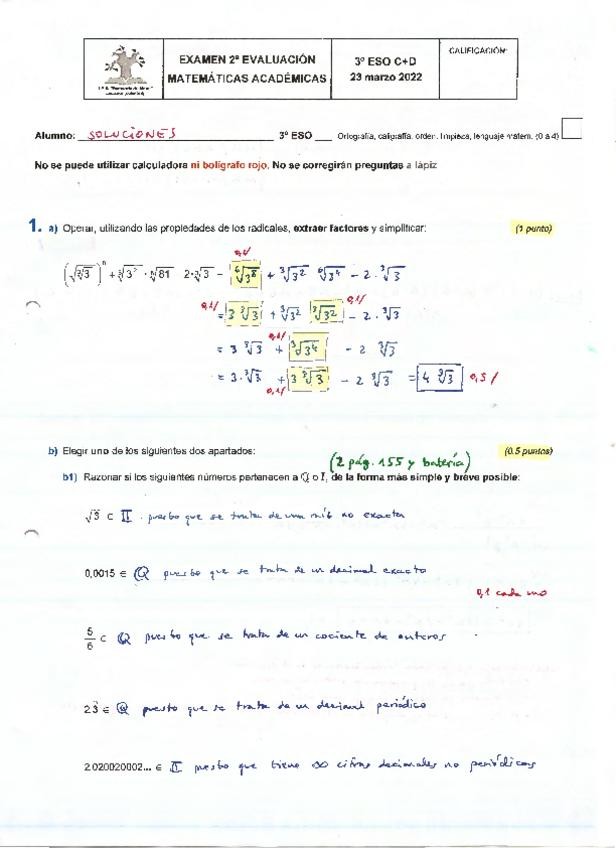 EXAMEN 2ª EVALUACIÓN
MATEMÁTICAS ACADÉMICAS
3º ESO C+D
23 marzo 2022
CALIFICACIÓN:
Alumno: SOLUCIONES 3º ESO ___ Ortografía, caligrafía, orden, limpieza, lenguaje matem. (0 a 4)
No se puede utilizar calculadora ni bolígrafo rojo. No se corregirán preguntas a lápiz
1. a) Operar, utilizando las propiedades de los radicales, extraer factores y simplificar: (1 punto)
+ ∛3² ⁶√3⁴ - 2·∛3
= 3∛3 + ∛3² ∛3² - 2·∛3
= 3∛3 + ∛3⁴ - 2∛3
= 3·∛3 + 3∛3 - 2∛3 = 4∛3 0,5/
b) Elegir uno de los siguientes dos apartados: (0.5 puntos)
(2 pág. 155 y batería)
b1) Razonar si los siguientes números pertenecen a Q o I, de la forma más simple y breve posible:
puesto que se trata de una raíz no exacta
0,0015 ∈ Q puesto que se trata de un decimal exacto
0,1 cada uno
5/6 ∈ Q puesto que se trata de un cociente de enteros
∈ Q puesto que se trata de un decimal periódico
2.020020002... ∈ I puesto que tiene ∞ cifras decimales no periódicas